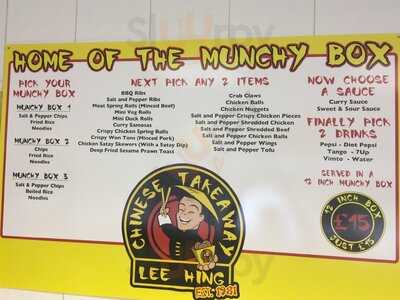 HOME OF THE MUNCHY BOX
PICK YOUR
MUNCHY BOX
MUNCHY BOX 1
Salt & Pepper Chips
Fried Rice
Noodles
MUNCHY BOX 2
Chips
Fried Rice
Noodles
MUNCHY BOX 3
Salt & Pepper Chips
Boiled Rice
Noodles
NEXT PICK ANY 2 ITEMS
BBQ Ribs
Salt and Pepper Ribs
Meat Spring Rolls (Minced Beef)
Mini Veg Rolls
Mini Duck Rolls
Curry Samosas
Crispy Chicken Spring Balls
Crispy Won Tons (Minced Pork)
Chicken Satay Skewers (With a Satay Dip)
Deep Fried Sesame Prawn Toast
Crab Claws
Chicken Balls
Chicken Nuggets
Salt and Pepper Crispy Chicken Pieces
Salt and Pepper Shredded Chicken
Salt and Pepper Shredded Beef
Salt and Pepper Chicken Balls
Salt and Pepper Wings
Salt and Pepper Tofu
NOW CHOOSE
A SAUCE
Curry Sauce
Sweet & Sour Sauce
FINALLY PICK
2 DRINKS
Pepsi - Diet Pepsi
Tango - 7Up
Vimto - Water
SERVED IN A
12 INCH MUNCHY BOX
12 INCH BOX
£15
JUST £15
CHINESE TAKEAWAY
LEE HING
EST. 1981